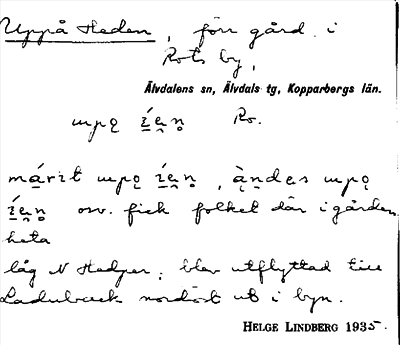 Uppå Heden, förr gård i
Rots by,
Älvdalens sn, Älvdals tg, Kopparbergs län.
uppǫ íen Ro.
márit uppǫ íen, àndes uppǫ
íen osv. fick folket där i gården
heta
låg N Hedper; blev utflyttad till
Ladubäck nordöst ut i byn.
HELGE LINDBERG 1935.